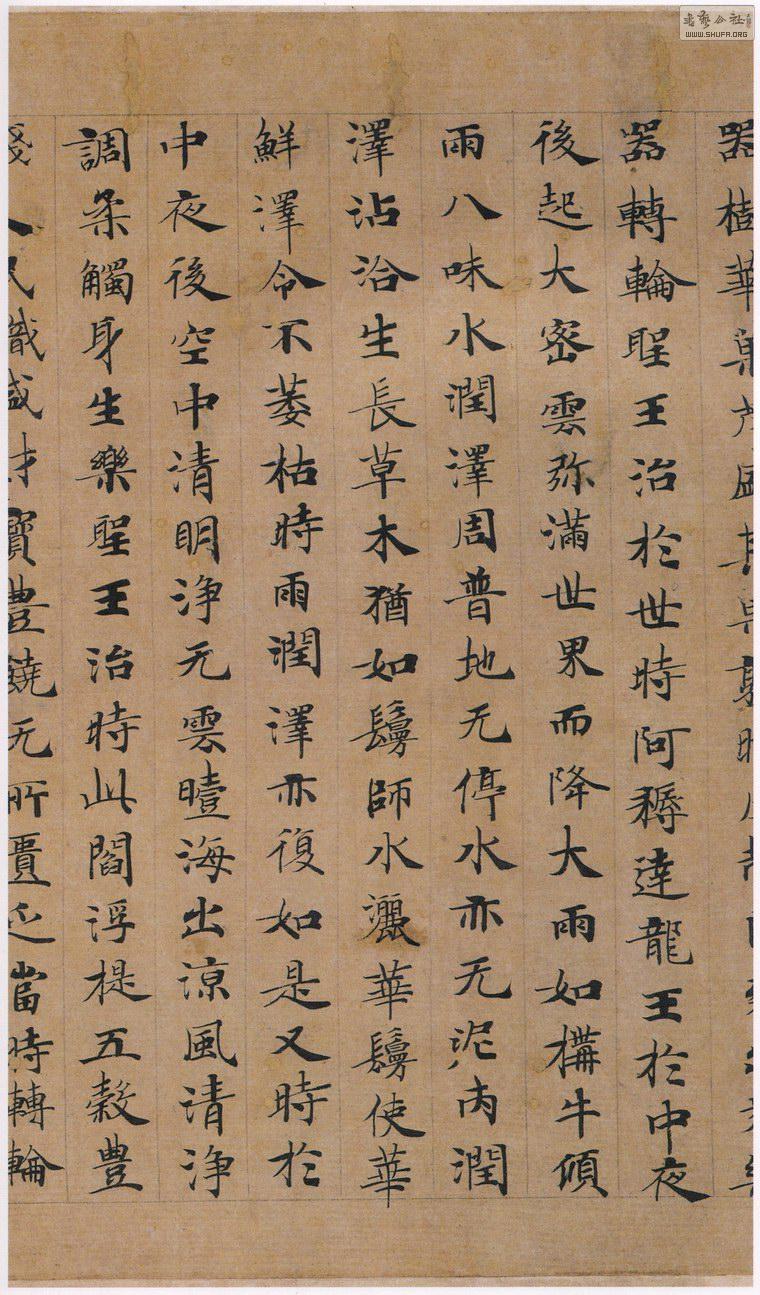 器樹華菓茂盛其菓熟時
器轉輪聖王治於世時阿耨達龍王於中夜
後起大密雲弥滿世界而降大雨如構牛傾
雨八味水潤澤周普地无停水亦无泥内潤
澤沾洽生長草木猶如鬘師水灑華鬘使華
鮮澤令不萎枯時雨潤澤亦復如是又時於
中夜後空中清明浄无雲曀海出涼風清浄
調柔觸身生樂聖王治時此閻浮提五穀豊
賤人民熾盛財寶豊饒无所匱乏當時轉輪
WWW.SHUFA.ORG